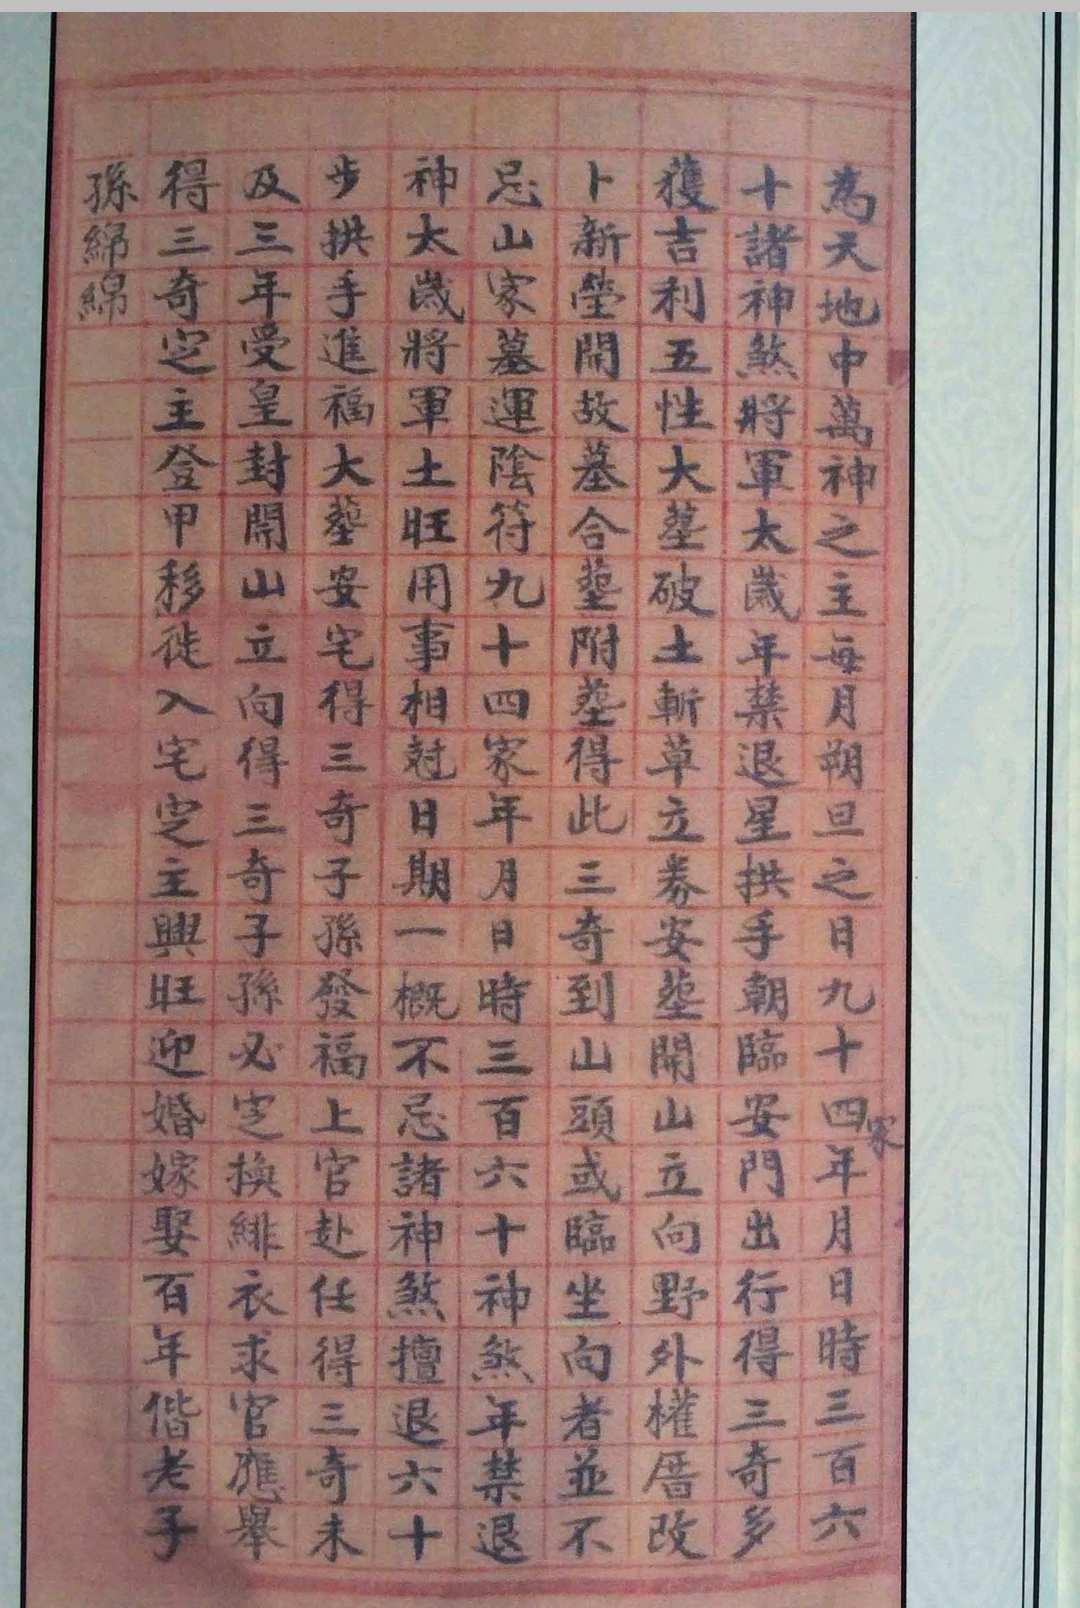 為天地中萬神之主每月朔旦之日九十四家年月日時三百六
十諸神煞將軍太歲年禁退星拱手朝臨安門出行得三奇多
獲吉利五性大墓破土斬草立券安墓開山立向野外權厝改
卜新塋開故墓合塟附塟得此三奇到山頭或臨坐向者並不
忌山家墓運陰符九十四家年月日時三百六十神煞年禁退
神太歲將軍土旺用事相尅日期一概不忌諸神煞擅退六十
步拱手進福大塟安宅得三奇子孫發福上官赴任得三奇未
及三年受皇封開山立向得三奇子孫必定換緋衣求官應舉
得三奇定主登甲移徙入宅定主興旺迎婚嫁娶百年偕老子
孫綿綿